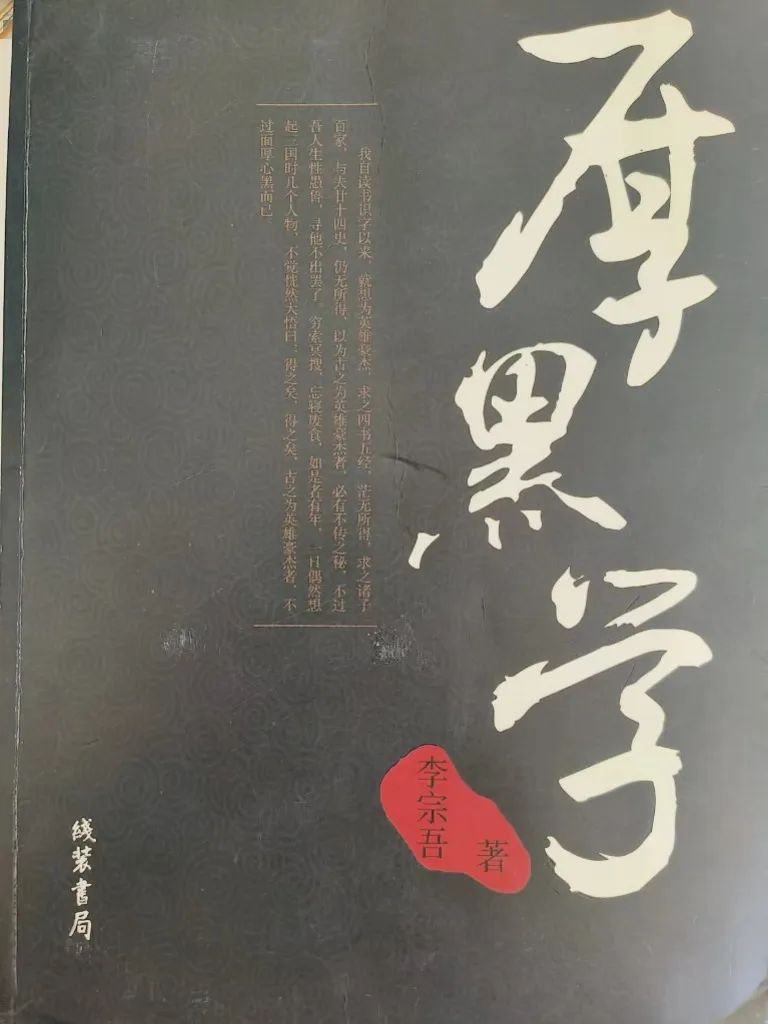 厚黑学
我自读书识字以来，就想为英雄豪杰，求之四书五经，茫无所得，求之诸子
百家，与夫廿十四史，仍无所得，以为古之为英雄豪杰者，必有不传之秘，不过
吾人生性愚鲁，寻他不出罢了。穷索冥搜，忘寝废食，如是者有年，一日偶然想
起三国时几个人物，不觉恍然大悟曰：得之矣，得之矣，古之为英雄豪杰者，不
过面厚心黑而已
李宗吾
著
线装书局